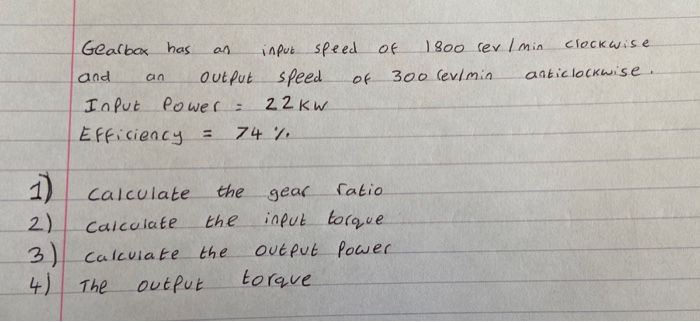 Gearbox has an input speed of 1800 rev/min clockwise
and an output speed of 300 rev/min anticlockwise.
Input Power = 22 kw
Efficiency = 74 %.
1) Calculate the gear ratio
2) Calculate the input torque
3) Calculate the output power
4) The output torque